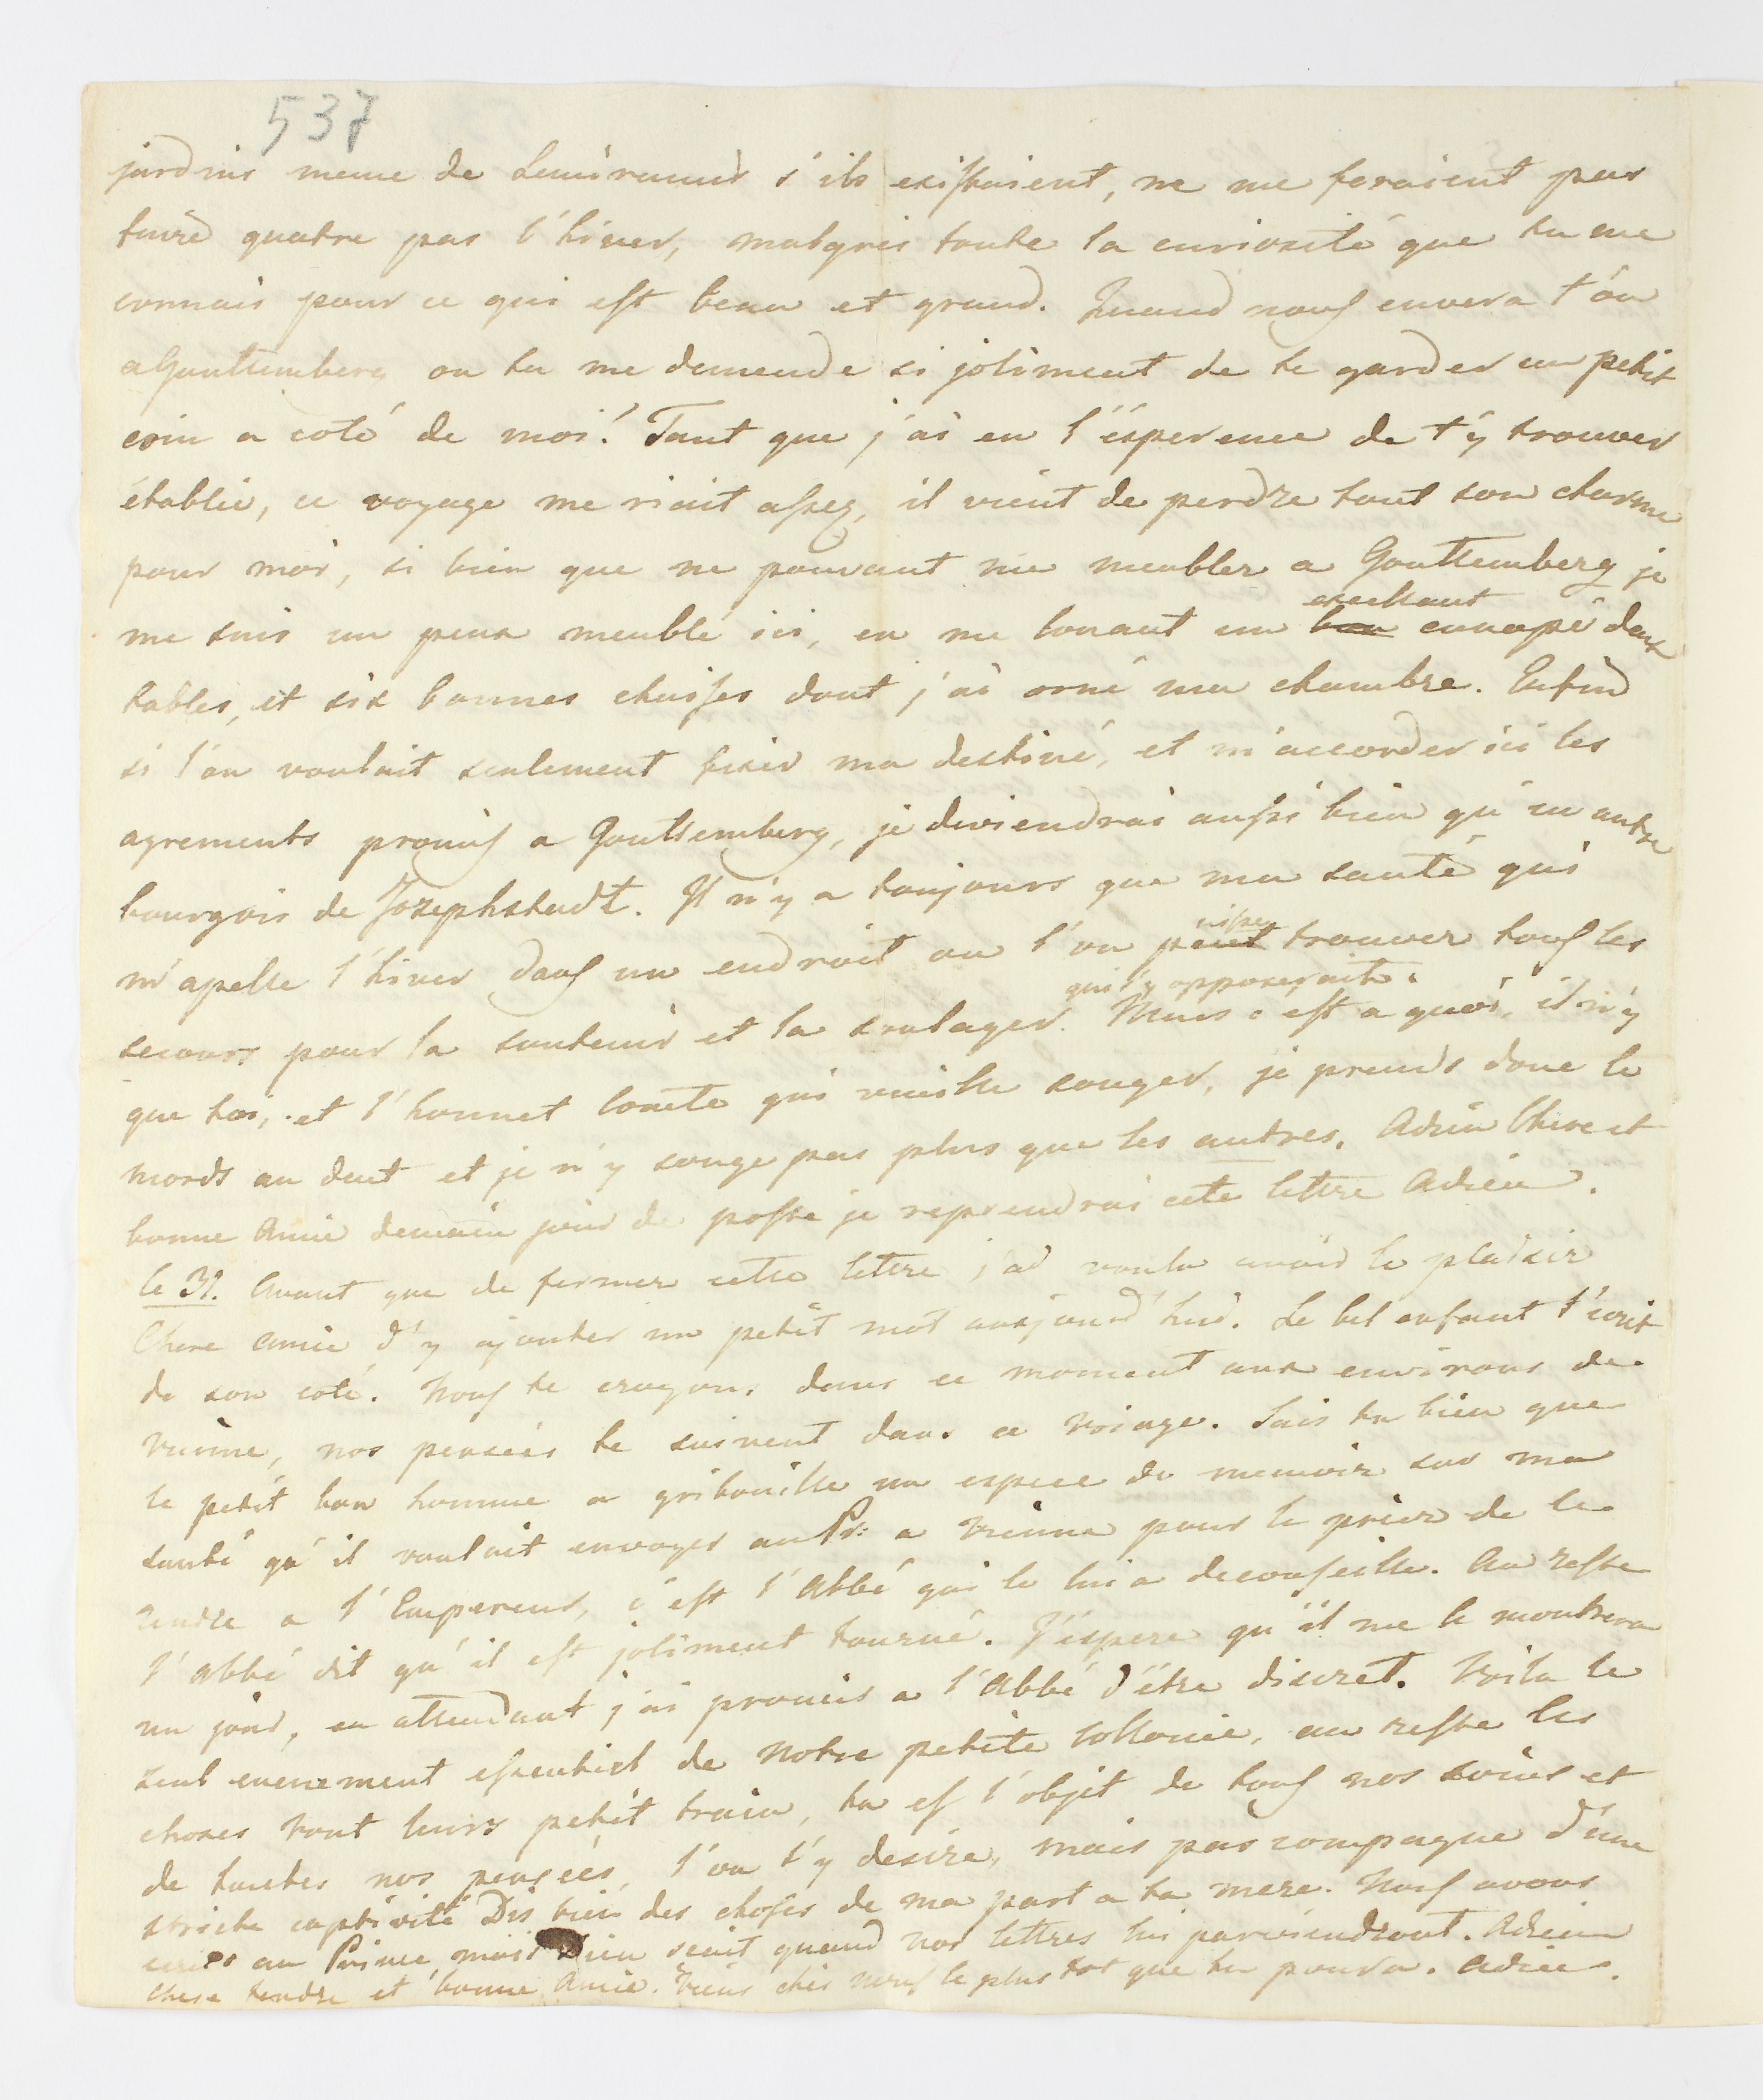 537
jardins meme de Semiramis s'ils existaient, ne me feraient pas
faire quatre pas l'hiver, malgrés toute la curiosité que tu me
connais pour ce qui est beau et grand. Quand nous envera t'on
a Gouttemberg ou tu me demende si joliment de te garder un petit
coin a coté de moi! Tant que j'ai eu l'ésperence de t'y trouver
établie, ce voyage me riait assez, il vient de perdre tout son charme
pour moi, si bien que ne pouvant me meubler a Gouttemberg je
me suis un peux meublé ici, en me louant un excellent canapé deux
tables, et six bonnes chaises dont j'ai orné ma chambre. Enfin
si l'on voulait seulement fixer ma destiné, et m'accorder ici les
agrements promis a Gouttemberg, je deviendrai aussi bien qu'un autre
bourgois de Josephstadt. Il n'y a toujours que ma santé qui
m'apelle l'hiver dans un endroit ou l'on puisse trouver tous les
secours pour la soutenir et la soulager. qui s'y opposerait. Mais c'est a quoi, il n'y
que toi, et l'honnet Comte qui veuille songer, je prends donc le
mords au dent et je n'y songe pas plus que les autres. Adieu Chere et
bonne Amie demain jour de poste je reprendrai cete lettre Adieu.
le 31. Avant que de fermer cette lettre j'ai voulu avoir le plaisir
Chere amie d'y ajouter un petit mot aujourd'hui. Le bel enfant t'ecrit
de son coté. Nous te croyons dans ce moment aux environs de
Vienne, nos pensées te suivent dans ce voiage. Sais tu bien que
le petit bon homme a gribouille un espece de memoir sur ma
santé qu'il voulait envoyer au Pr: a Vienne pour le prier de le
rendre a l'Empereur, c'est l'Abbé qui le lui a deconseille. Au reste
l'abbé dit qu'il est joliment tourné. J'éspere qu'il me le montrera
un jour, en attendant j'ai promis a l'Abbé d'étre discret. Voila le
seul evenement essentiel de Notre petite Collonie, au reste les
choses vont leurs petit train, tu es l'objet de tous nos soins et
de toutes nos pensées, l'on t'y desire, mais pas compagne d'une
stricte captivité Dis bien des choses de ma part a ta mere. Nous avons
ecrit au Prince, mais Dieu scait quand nos lettres lui parviendront. Adieu
Chere tendre et bonne Amie. Viens chés nous le plus tot que tu poura. Adieu.